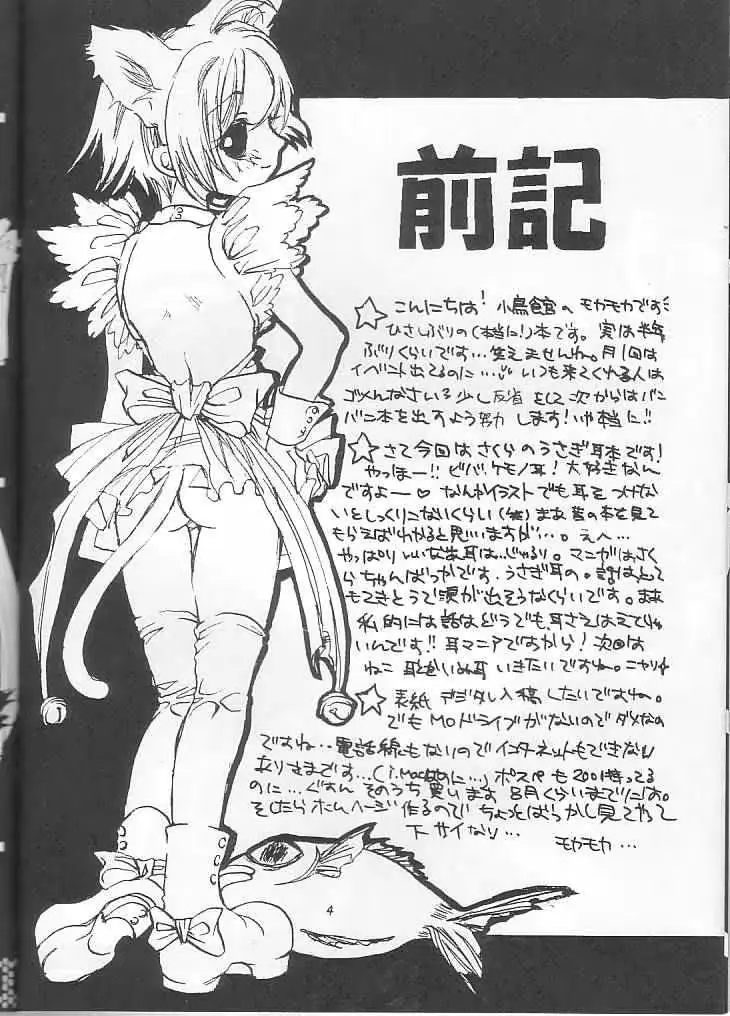 前記
☆こんにちは! 小鳥館のモカモカです
ひさしぶりの(本当に!)本です。実は半年
ぶりくらいです…笑えませんね。月1回は
イベント出てるのに…いつも来てくれる人は
ゴメんなさい 少し反省をして次からはバン
バン本を出すよう努力します!いや本当に!!
★さて今回はさくらのうさぎ耳本です!
やっほー!!ビバ、ケモノ耳!大好きなん
ですよー♡なんかイラストでも耳をつけない
いとしっくりこないくらい(笑)まぁ昔の本を見て
もらえばわかると思いますが…。えへ…
やっぱりいいなぁ耳は…じゅるり。マンガはさく
らちゃんばっかです。うさぎ耳の。話はとて
もてきとうで涙が出そうなくらいです。まぁ
私的には話はどうでも、耳さえはえてりゃ
いんです!!耳マニアですから!次回は
ねこ耳とかいぬ耳いきたいですね。ニヤリ
☆表紙デジタル入稿したいですね。
でもMOドライブがないのでダメなの
ですね…電話線もないのでインターネットもできない
ありさまです…(i.Macなのに…)ポスペも2001持ってる
のに…ぐすん そのうち買います 8月くらいまでには。
そしたらホームページ作るのでちょっとばっかし見てやって
下サイな!!…
モカモカ…
4